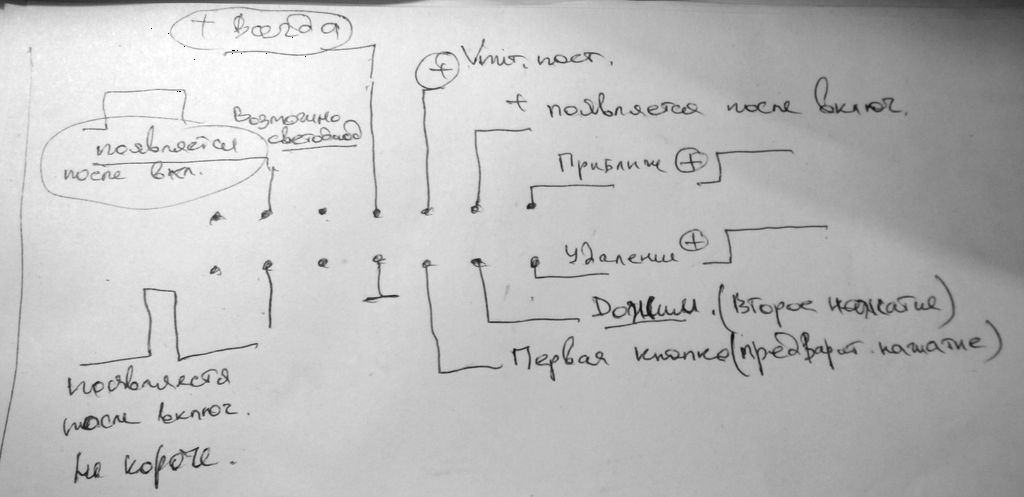 + всегда
+ Uпит. пост.
+ появляется после включ.
Возможно
светодиод
появляется
после вкл.
Приближ +
Удалении +
Дожим. (Второе нажатие)
Первая кнопка (предварит. нажатие)
появляется
после включ.
Не короче.